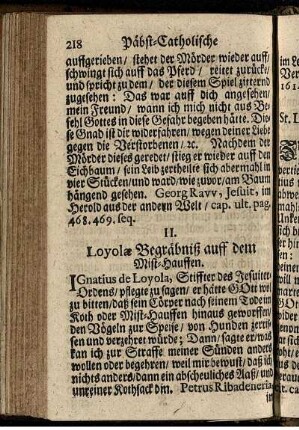 218 Päbst-Catholische
auffgerieben/ stehet der Mörder wieder auff/
schwingt sich auff das Pferd/ reitet zurücke/
und spricht zu dem/ der diesem Spiel zitternd
zugesehen: Das war auff dich angesehen/
mein Freund/ wann ich mich nicht aus Be-
fehl Gottes in diese Gefahr begeben hätte. Die-
se Gnad ist dir widerfahren/ wegen deiner Liebe
gegen die Verstorbenen/ ꝛc. Nachdem der
Mörder dieses geredet/ stieg er wieder auff den
Eichbaum/ sein Leib zertheilte sich abermahl in
vier Stücken/ und ward/ wie zuvor/ am Baum
hängend gesehen. Georg Ravv, Jesuit, im
Herold aus der andern Welt/ cap. ult. pag.
468. 469. seq.
II.
Loyolæ Begräbniß auff dem
Mist-Hauffen.
IGnatius de Loyola, Stiffter des Jesuiter-
Ordens/ pflegte zu sagen/ er hätte GOtt wol
zu bitten/ daß sein Cörper nach seinem Tode in
Koth oder Mist-Hauffen hinaus geworffen/
den Vögeln zur Speise/ von Hunden zerris-
sen und verzehret würde; Dann/ sagte er/ was
kan ich zur Straffe meiner Sünden anders
wollen oder begehren/ weil mir bewust/ daß ich
nichts anders/ dann ein abscheuliches Aaß/ und
unreiner Kothsack bin. Petrus Ribadeneria
in